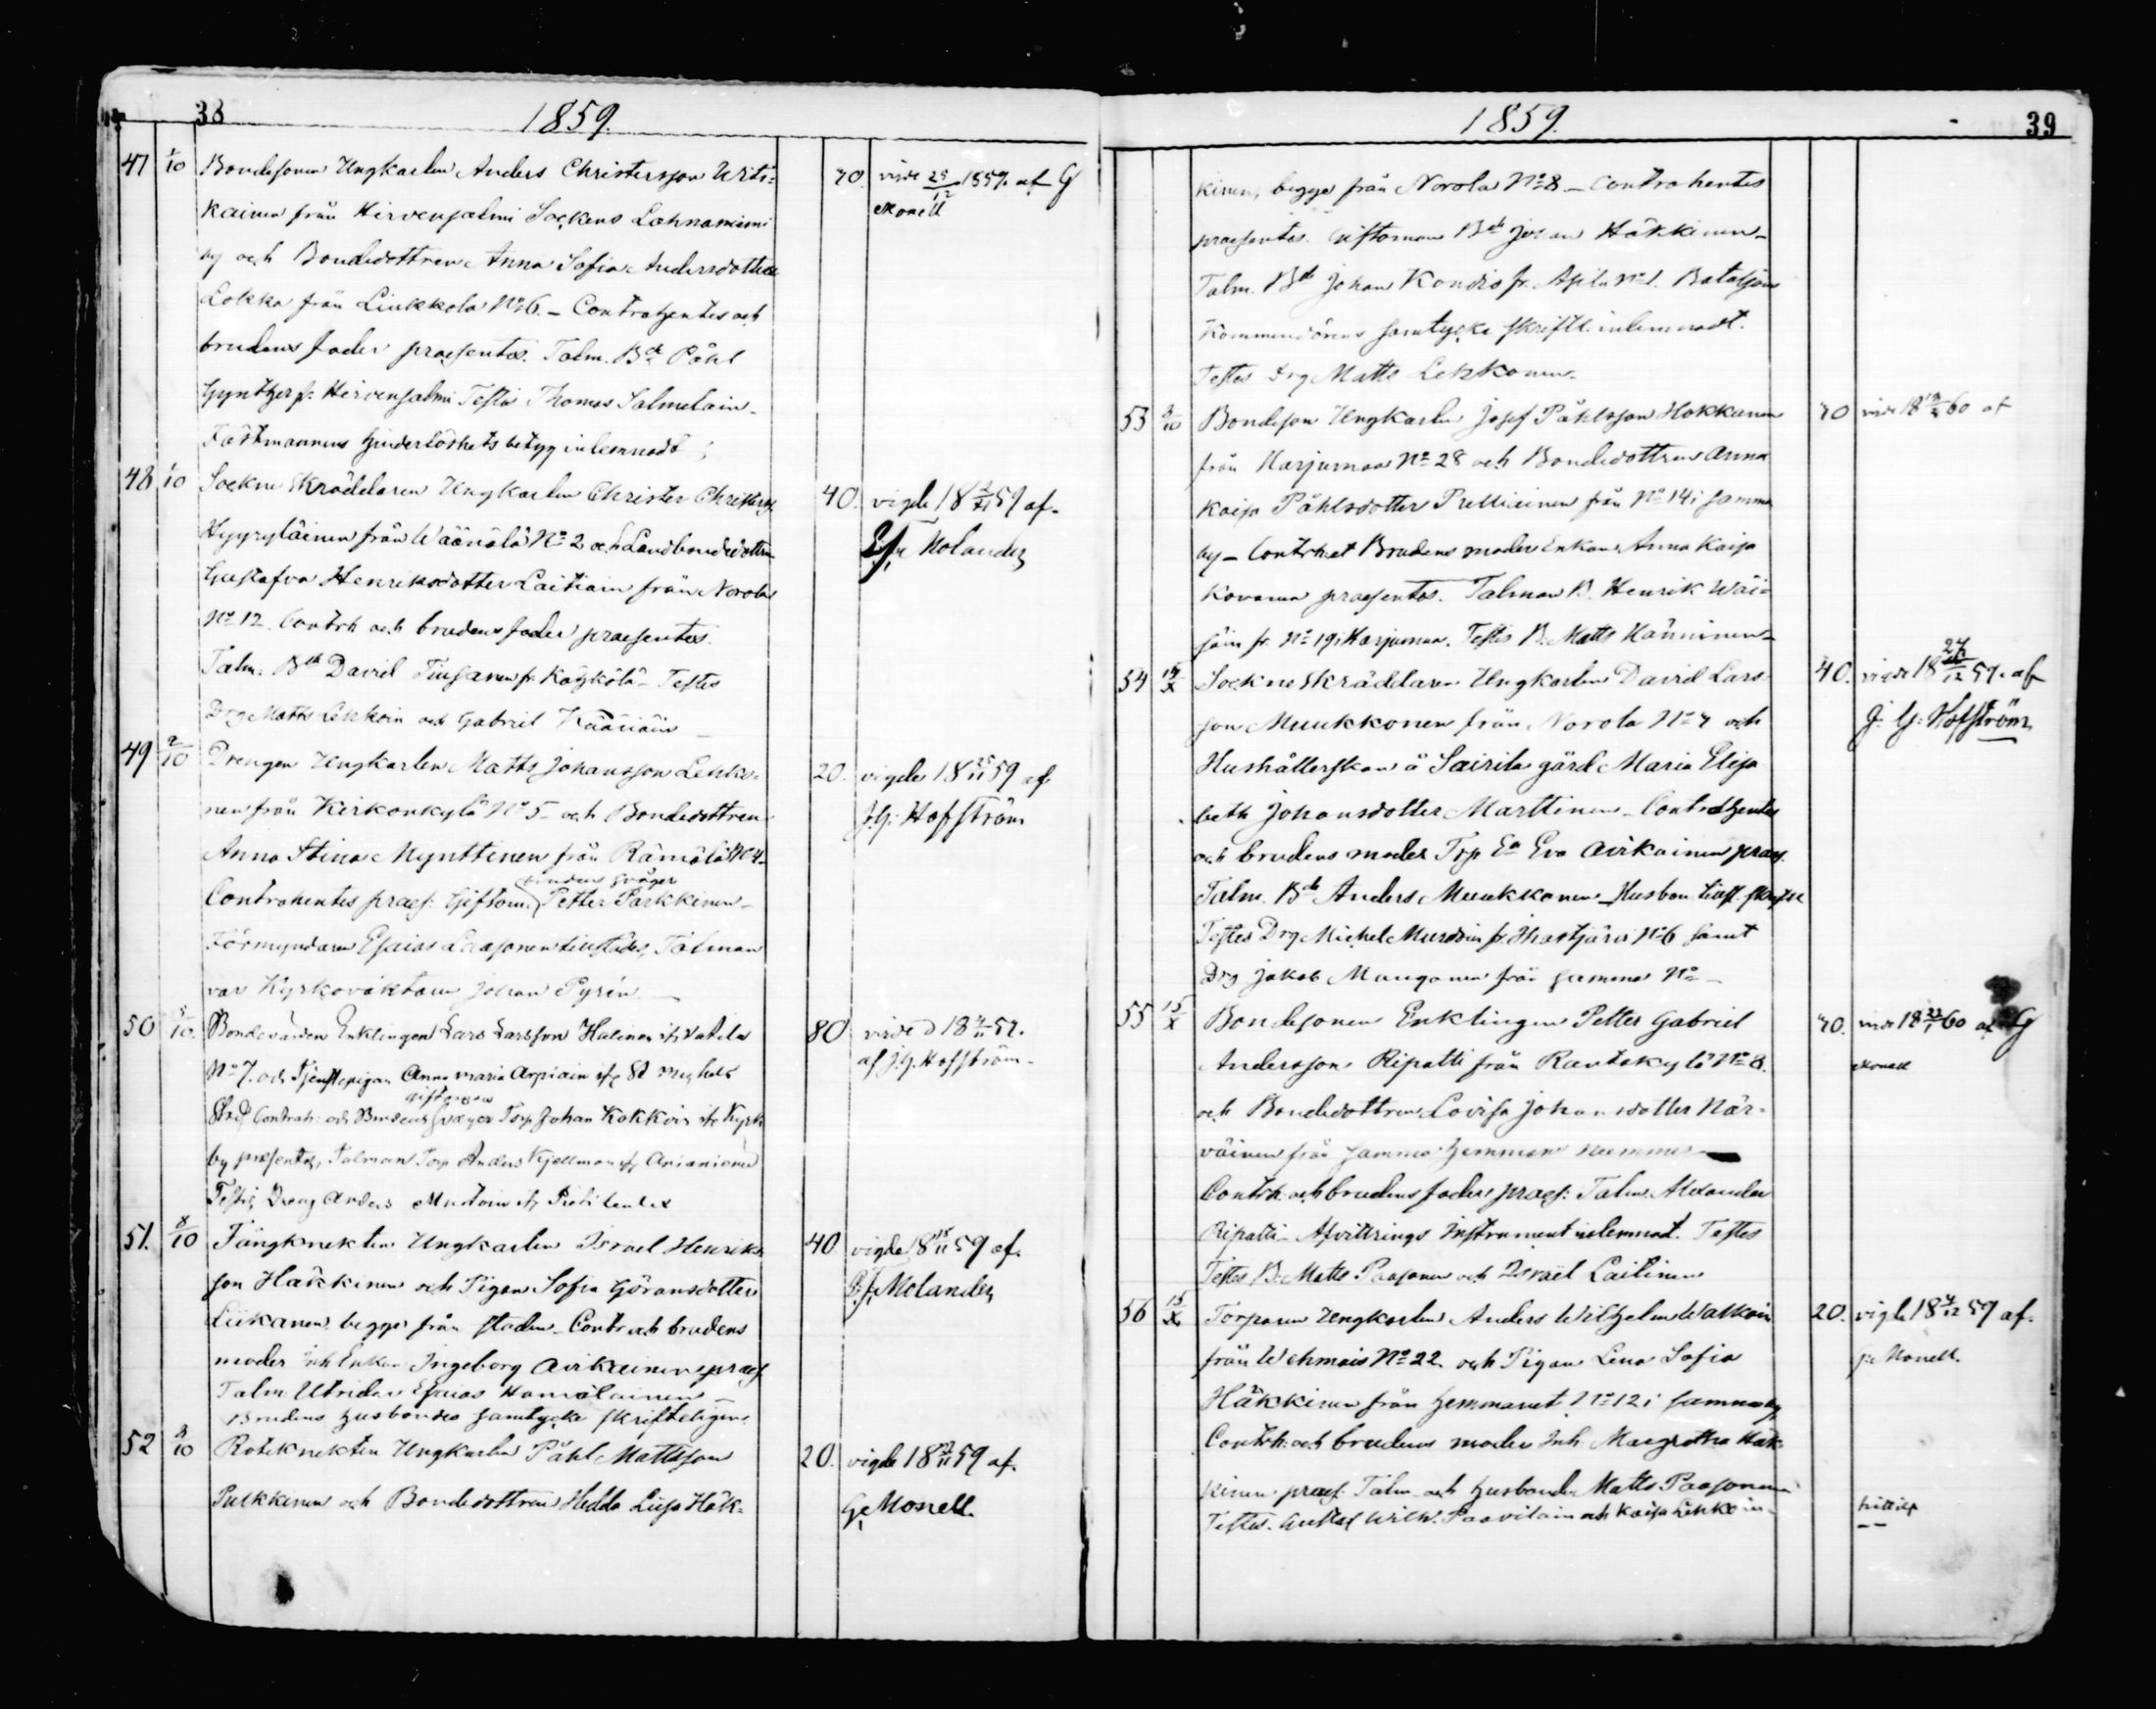 38
1859.
47 1/10 Bondesonen Ungkarlen Anders Christersson Witi=
kainen från Hirvensalmi Sockens Lahnaniemi
by och Bondedottren Anna Sofia Andersdotter
Lokka från Liukkola No 6. – Contrahentes och
brudens fader præsentes. Talm. Bd Påhl
Gynther fr. Hirvensalmi Testis Thomas Salmelain.
Fästmannens hinderlöshets betyg inlemnadt;
70. vigde 25/12 1859 af G
Monell
48 1/10 Sockne Skräddaren Ungkarlen Christer Christerss.
Hyyryläinen från Wäänälä No 2 och Landbondedottren
Gustafva Henriksdotter Laitiain från Norola
No 12. Contrh och brudens fader præsentes.
Talm. Bd David Tiusanen fr. Käykölä – Testes
Drg Matts Lekkoin och Gabriel Kääriäin
40. vigde 18 59 af.
Molander
49 2/10 Drengen Ungkarlen Matts Johansson Lekko-
nen från Kirkonkylä No 5 – och Bondedottren
Anna Stina Mynttinen från Rämälä No 4 –
Contrahentes præs: Giftom. Petter Parkkinen –
brudens svåger
Förmyndaren Esaias Laasonen tillstädes, Talman
var Kyrkovaktaren Johan Pyrén
20. vigde 18 25/11 59 af
J. G. Hofström
50 5/10 Bonde Enklingen Lars Larsson Halinen
No 7. och Tjenstepigan Anna Maria Arpiain
giftoman
Contrah: och Brudens Svåger Torp Johan Kokkoin ifr. Kyrk
by præsentes, Talman Torp Anders Kjellman ifr.
Testis Dreng Anders
80 vigde d 18 59.
af J. G. Hofström.
51. 8/10 Tångknekten Ungkarlen Israel Henriks
son Häkkinen och Pigan Sofia Göransdotter
Liikanen, begge från staden – Contr och brudens
moder Inh Enkan Ingeborg Avikainen præs.
Talm Utridar Esaias Hämäläinen –
Brudens husbondes samtycke skrifteligen.
40 vigde 18 15/11 59 af.
Molander
52 9/10 Roteknekten Ungkarlen Påhl Mattsson
Pulkkinen och Bondedottren Hedda Lisa Häk-
20. vigde 18 59 af.
G. Monell.
1859.
39
kinen, begge från Norola No 8 – Contrahentes
præsentes. Giftoman Bd Johan Häkkinen –
Talm. Bd Johan Kondis fr. Asila No 1. Bataljons
Kommendörens samtycke skriftl. inlemnadt.
Testes Drg Matts Lekkonen.
53 9/10 Bondeson Ungkarlen Josef Påhlsson Hokkanen
från Harjumaa No 28 och Bondedottren Anna
Kaisa Påhlsdotter Pulliainen från No 14 i samma
by – Contrh et Brudens moder Enkan Anna Kaisa
Kovanen præsentes. Talman B. Henrik Wäi=
säin fr. No 19 i Harjumaa. Testis B. Matts Hänninen –
70 vigde 18 60 af
54 15/X Sockne Skräddaren Ungkarlen David Lars
son Muukkonen från Norola No 7 och
Hushållerskan å Sairila gård Maria Elisa
beth Johansdotter Marttinen – Contrahentes
och brudens moder Torp Ea Eva Avikainen præs.
Talm. Bd Anders Muukkonen – Husbon tills. skriftl
Testes Drg Michel Mursoin fr. Ihastjärvi No 6 samt
Drg Jakob Manganen från samma No –
40. vigde 18 24/12 59. af
J. G. Hofström
55 15/X Bondesonen Enklingen Petter Gabriel
Andersson Ripatti från Rantakylä No 8.
och Bondedottren Lovisa Johansdotter När-
väinen från samma hemmans nummer
Contrh. och brudens fader præs: Talm. Alexander
Ripatti – Afvittrings Instrument inlemnat. Testes
Testes B. Matts Paasonen och Israel Laitinen
70. vigde 18 22/1 60 af G
Monell
56 15/X Torparen Ungkarlen Anders Wilhelm Walkoin
från Wehmais No 22. och Pigan Lena Sofia
Häkkinen från hemmanet No 12 i samma by
Contrh: och brudens moder Inh. Margretha Häk
kinen præs. Talm. och husbonde Matts Paasonen
Testes. Gustaf Wilh. Paavilain och Kaisa Lekkoin –
20. vigde 18 4/12 59 af.
Monell.